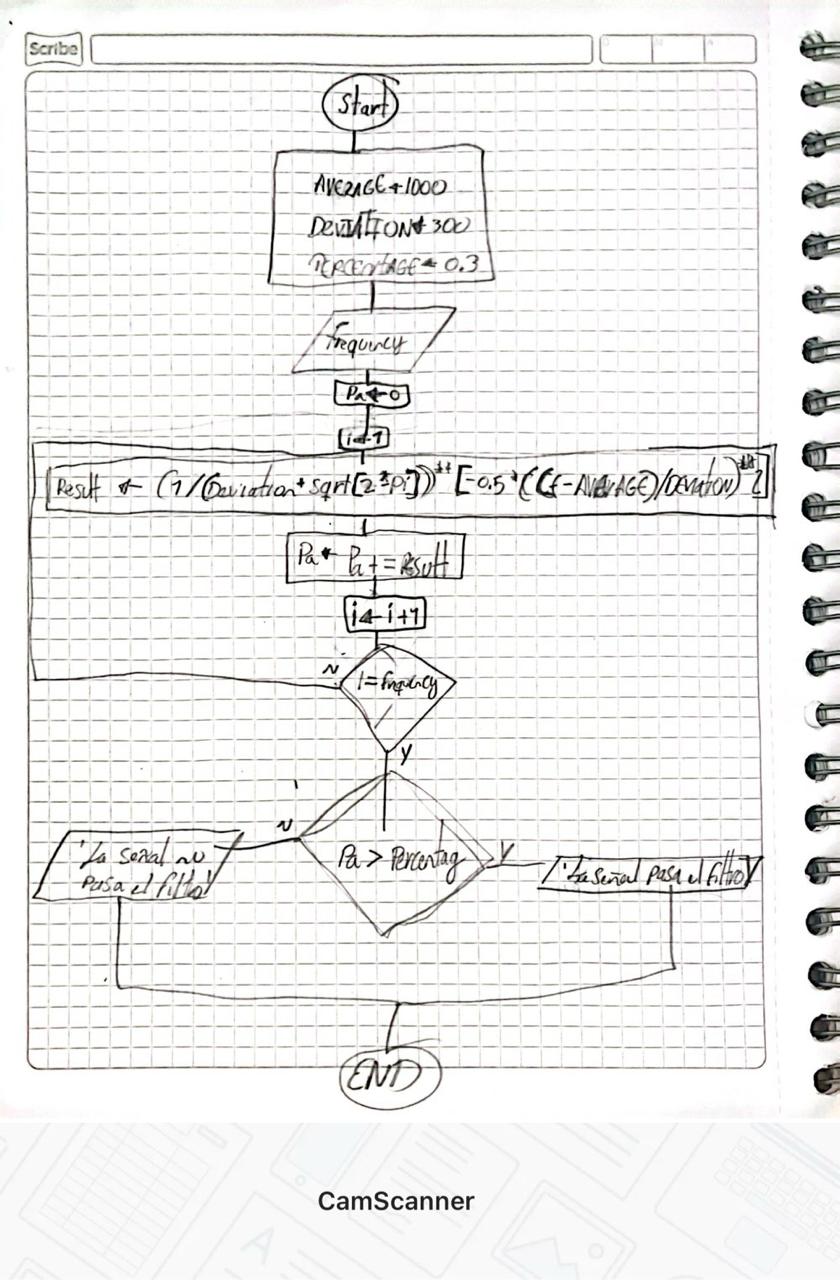 Scribe
Start
AVERAGE ← 1000
DEVIATION ← 300
PERCENTAGE ← 0.3
Frequncy
Pa ← 0
i ← 1
Result ← (1/(Deviation * sqrt[2*pi]))** [-0.5*((f-AVERAGE)/DEVIATION)**2]
Pa ← Pa += Result
i ← i+1
N
I = frequncy
Y
N
Pa > Percentag
Y
'La señal no
pasa el filtro'
'La señal pasa el filtro'
END
CamScanner